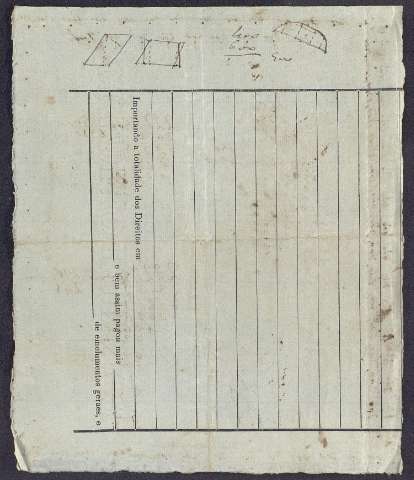 Importando a totalidade dos Direitos em
e bem assim pagou mais
de emolumentos geraes, e